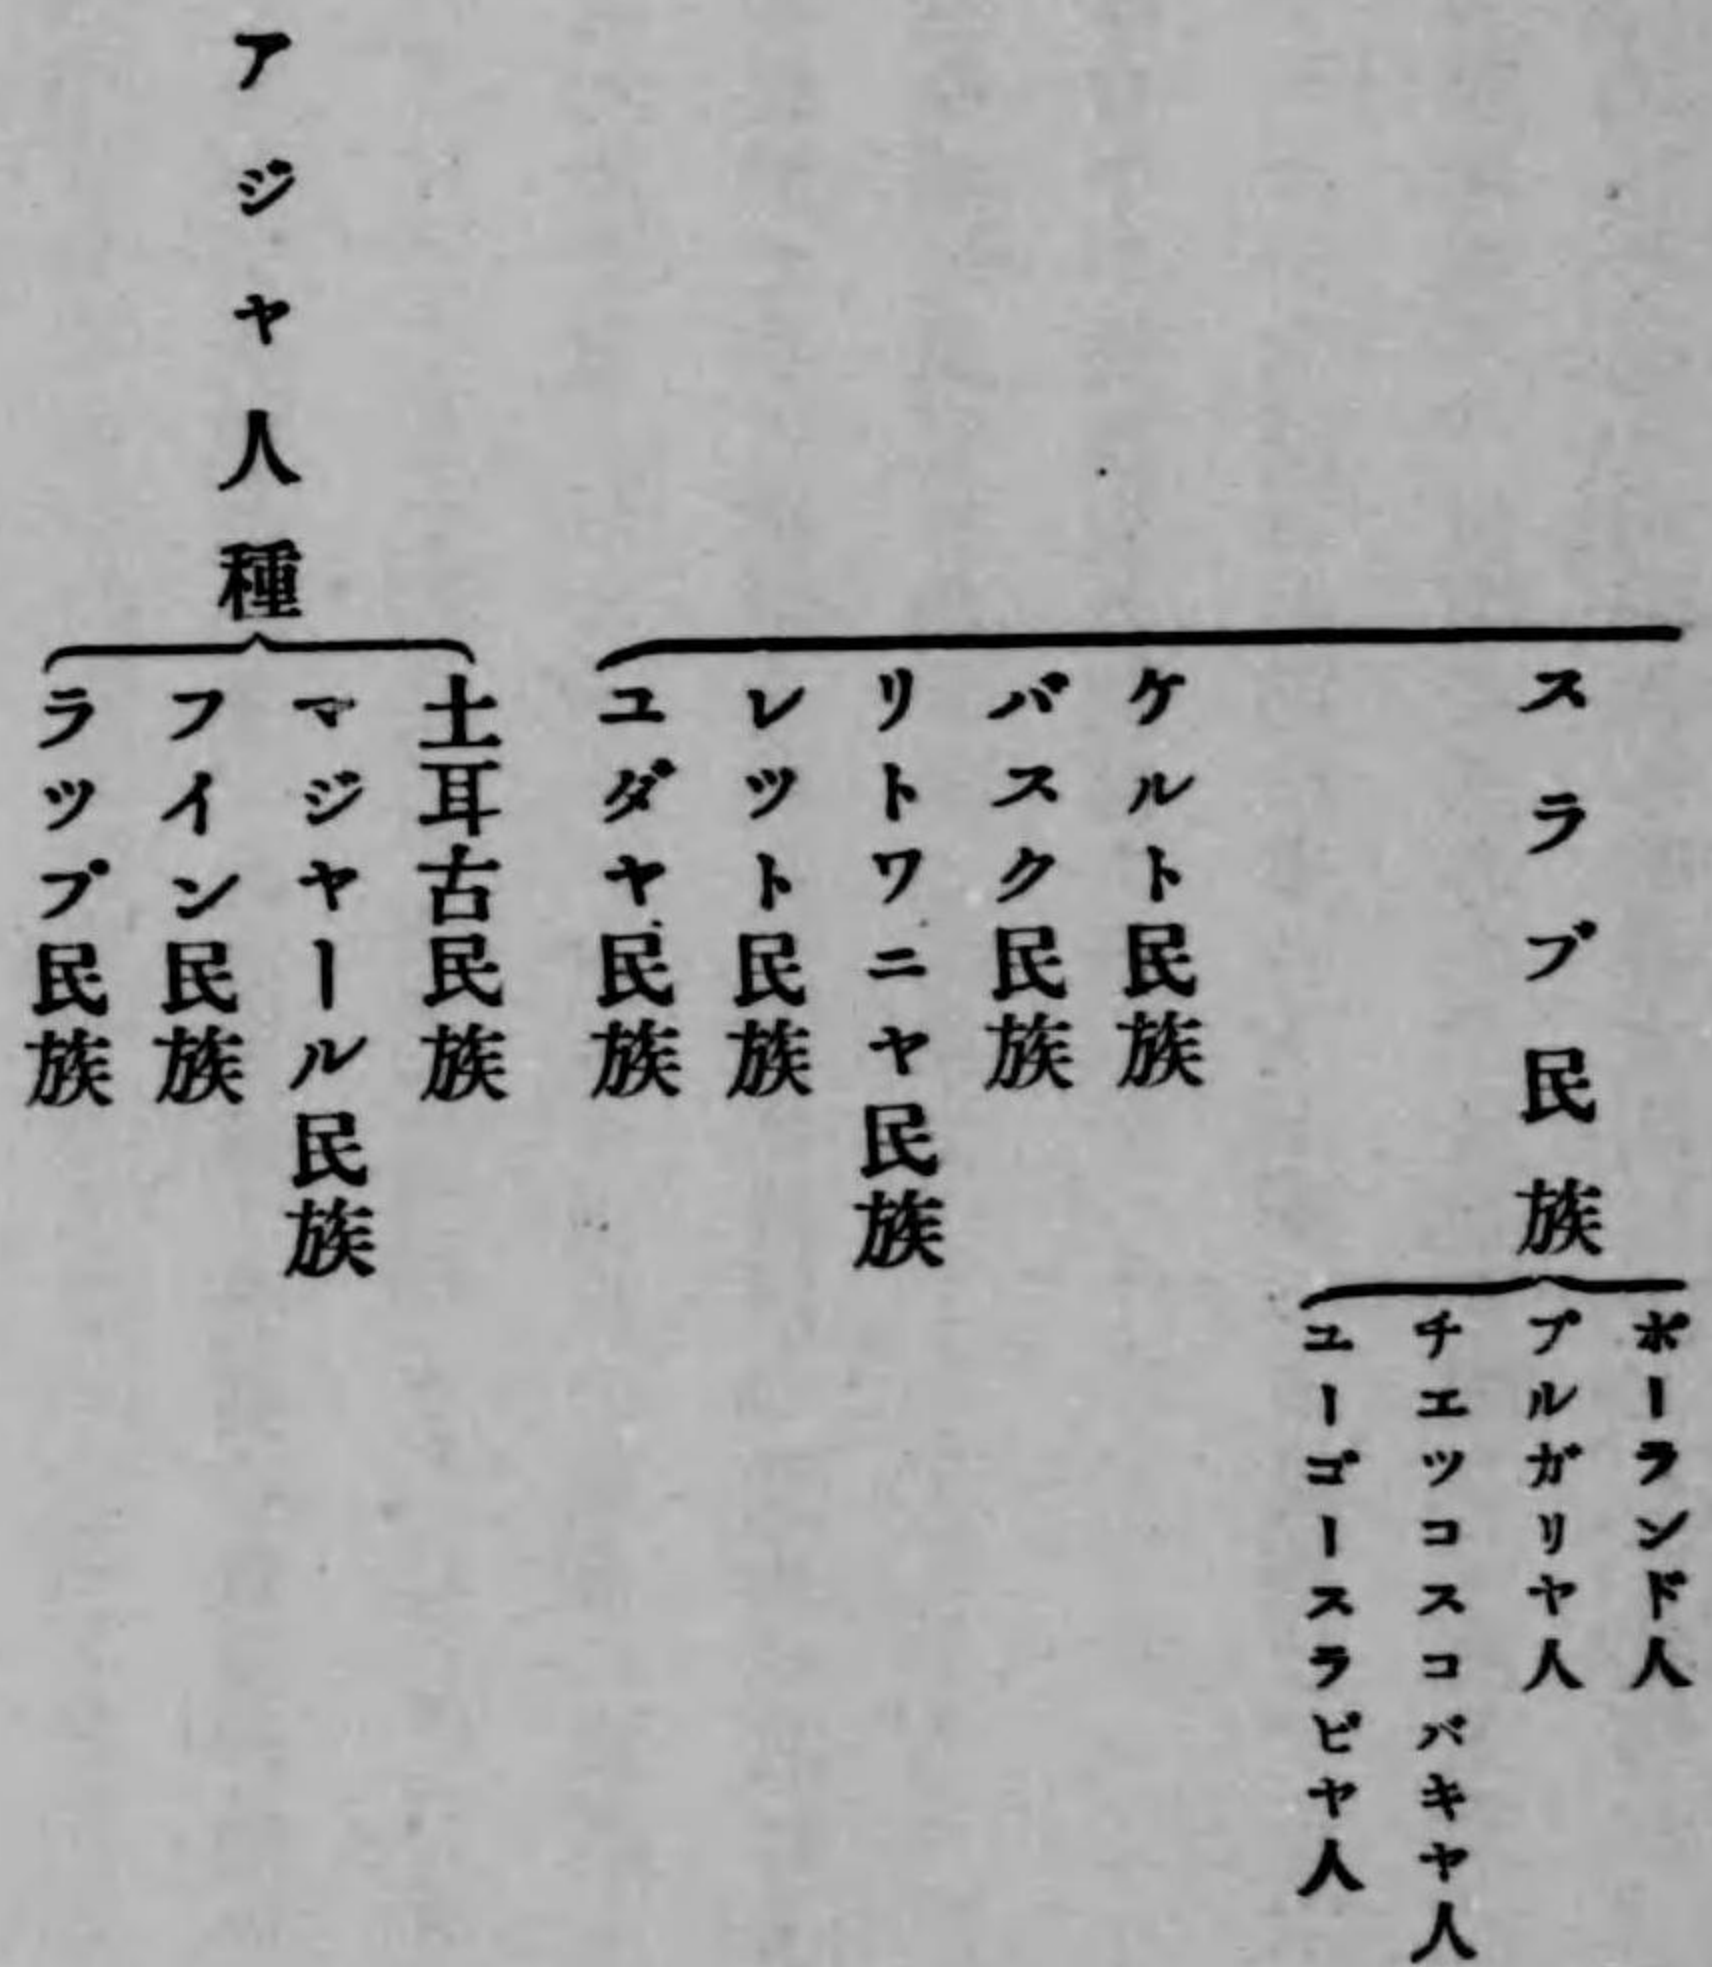 スラブ民族
ポーランド人
ブルガリヤ人
チエツコスコバキヤ人
ユーゴースラビヤ人
ケルト民族
バスク民族
リトワニヤ民族
レツト民族
ユダヤ民族
アジヤ人種
土耳古民族
マジヤール民族
フイン民族
ラツプ民族